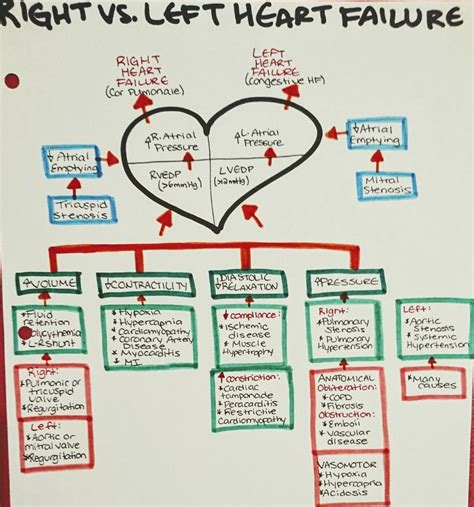 RIGHT VS. LEFT HEART FAILURE
RIGHT
HEART
FAILURE
(Cor Pulmonale)
LEFT
HEART
FAILURE
(Congestive HF)
↑R. Atrial
Pressure
↑L. Atrial
Pressure
RVEDP
(>6mmHg)
LVEDP
↓Atrial
Emptying
Tricuspid
Stenosis
↓Atrial
Emptying
Mitral
Stenosis
↑VOLUME
* Fluid
retention
Polycythemia
* L-RShunt
Right:
* Pulmonic or
tricuspid
valve
* Regurgitation
Left:
* Aortic or
mitral valve
* Regurgitation
↓CONTRACTILITY
* Hypoxia
* Hypercapnia
* Cardiomyopathy
* Coronary Artery
Disease
* Myocarditis
* MI
↓DIASTOLIC
RELAXATION
↓compliance:
* Ischemic
disease
* Muscle
Hypertrophy
↑constriction:
* Cardiac
tamponade
* Pericarditis
* Restrictive
Cardiomyopathy
↑PRESSURE
Right:
* Pulmonary
Stenosis
* Pulmonary
Hypertension
ANATOMICAL
Obliteration:
* COPD
* Fibrosis
Obstruction:
* Emboli
* Vascular
disease
VASOMOTOR
* Hypoxia
* Hypercapnia
* Acidosis
Left:
* Aortic
Stenosis
* Systemic
Hypertension
* Many
causes